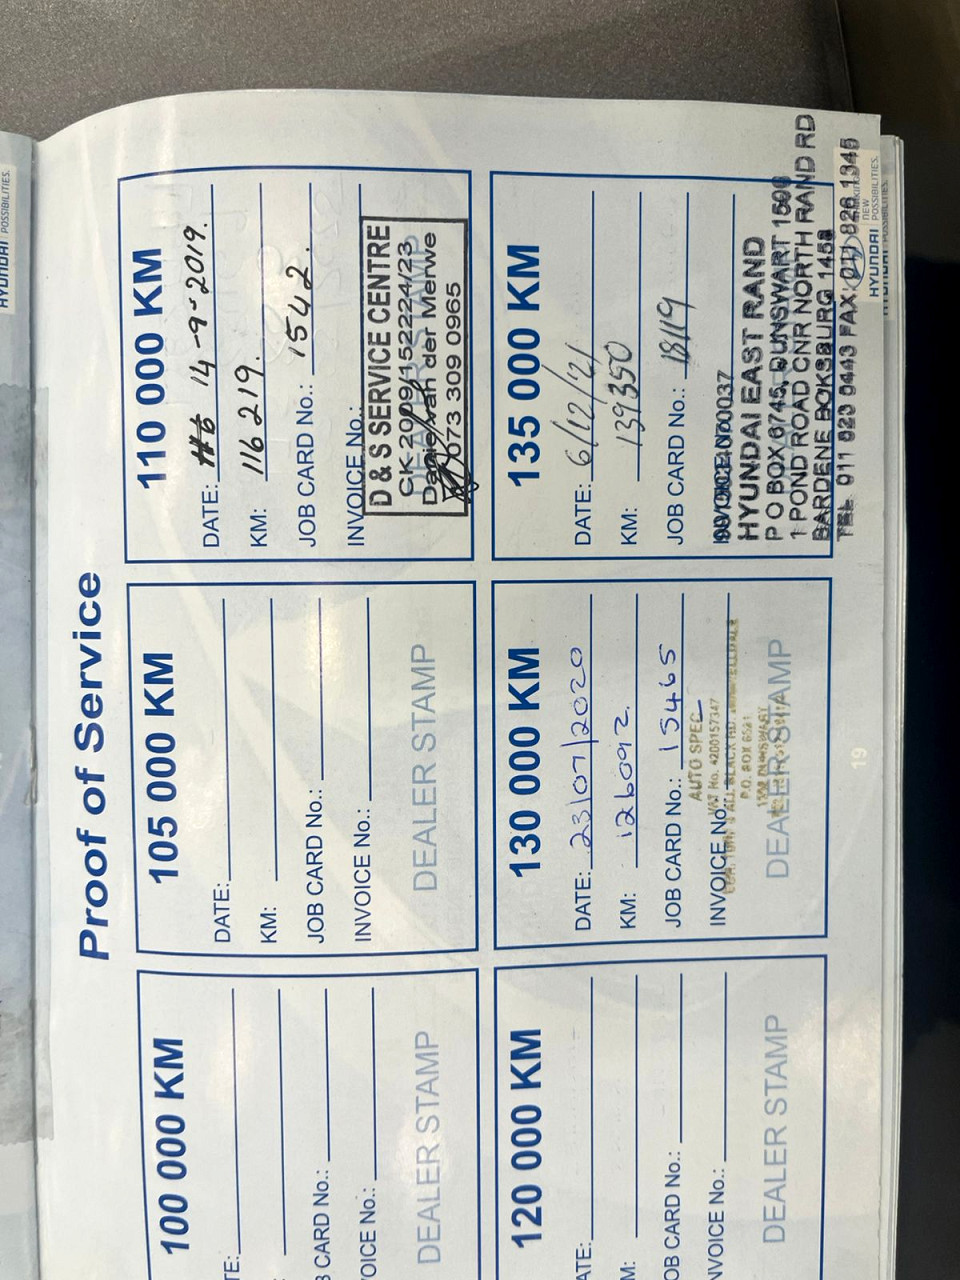 Proof of Service
100 000 KM
TE:
CARD No.:
OICE No.:
DEALER STAMP
105 000 KM
DATE:
KM:
JOB CARD No.:
INVOICE No.:
DEALER STAMP
110 000 KM
DATE: 14-9-2019.
KM: 116 219.
JOB CARD No.: 1542.
INVOICE No.:
D & S SERVICE CENTRE
CK 2009/152224/23
Daniel van der Merwe
073 309 0965
120 000 KM
ATE:
M:
OB CARD No.:
NVOICE No.:
DEALER STAMP
130 000 KM
DATE: 23/07/2020
KM: 126092.
JOB CARD No.: 15465
AUTO SPEC
VAT No. 4200157347
INVOICE No.:
P.O. BOX 6521
DEALER STAMP
135 000 KM
DATE: 6/12/21
KM: 139350
JOB CARD No.: 18119
INVOICE No.:
HYUNDAI EAST RAND
P O BOX 6745, DUNSWART 1508
1 POND ROAD CNR NORTH RAND RD
BARDENE BOKSBURG 1459
TEL 011 823 0443 FAX 011 826 1345
19
HYUNDAI
NEW
POSSIBILITIES.
HYUNDAI POSSIBILITIES.